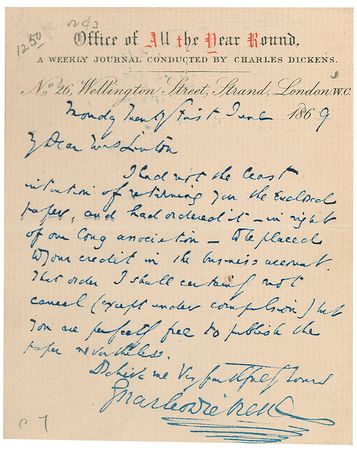 12.50
Office of All the Year Round,
A WEEKLY JOURNAL CONDUCTED BY CHARLES DICKENS.
No. 26, Wellington Street, Strand, London W.C.
Monday Twenty First June 1869
My Dear Mrs Linton
I had not the least
intention of returning you the enclosed
paper, and had ordered it – in right
of our long association – to be placed
to your credit in the business account.
That order I shall certainly not
cancel (except under compulsion) but
you are perfectly free to publish the
paper nevertheless.
Believe me Very faithfully Yours
Charles Dickens
C 7